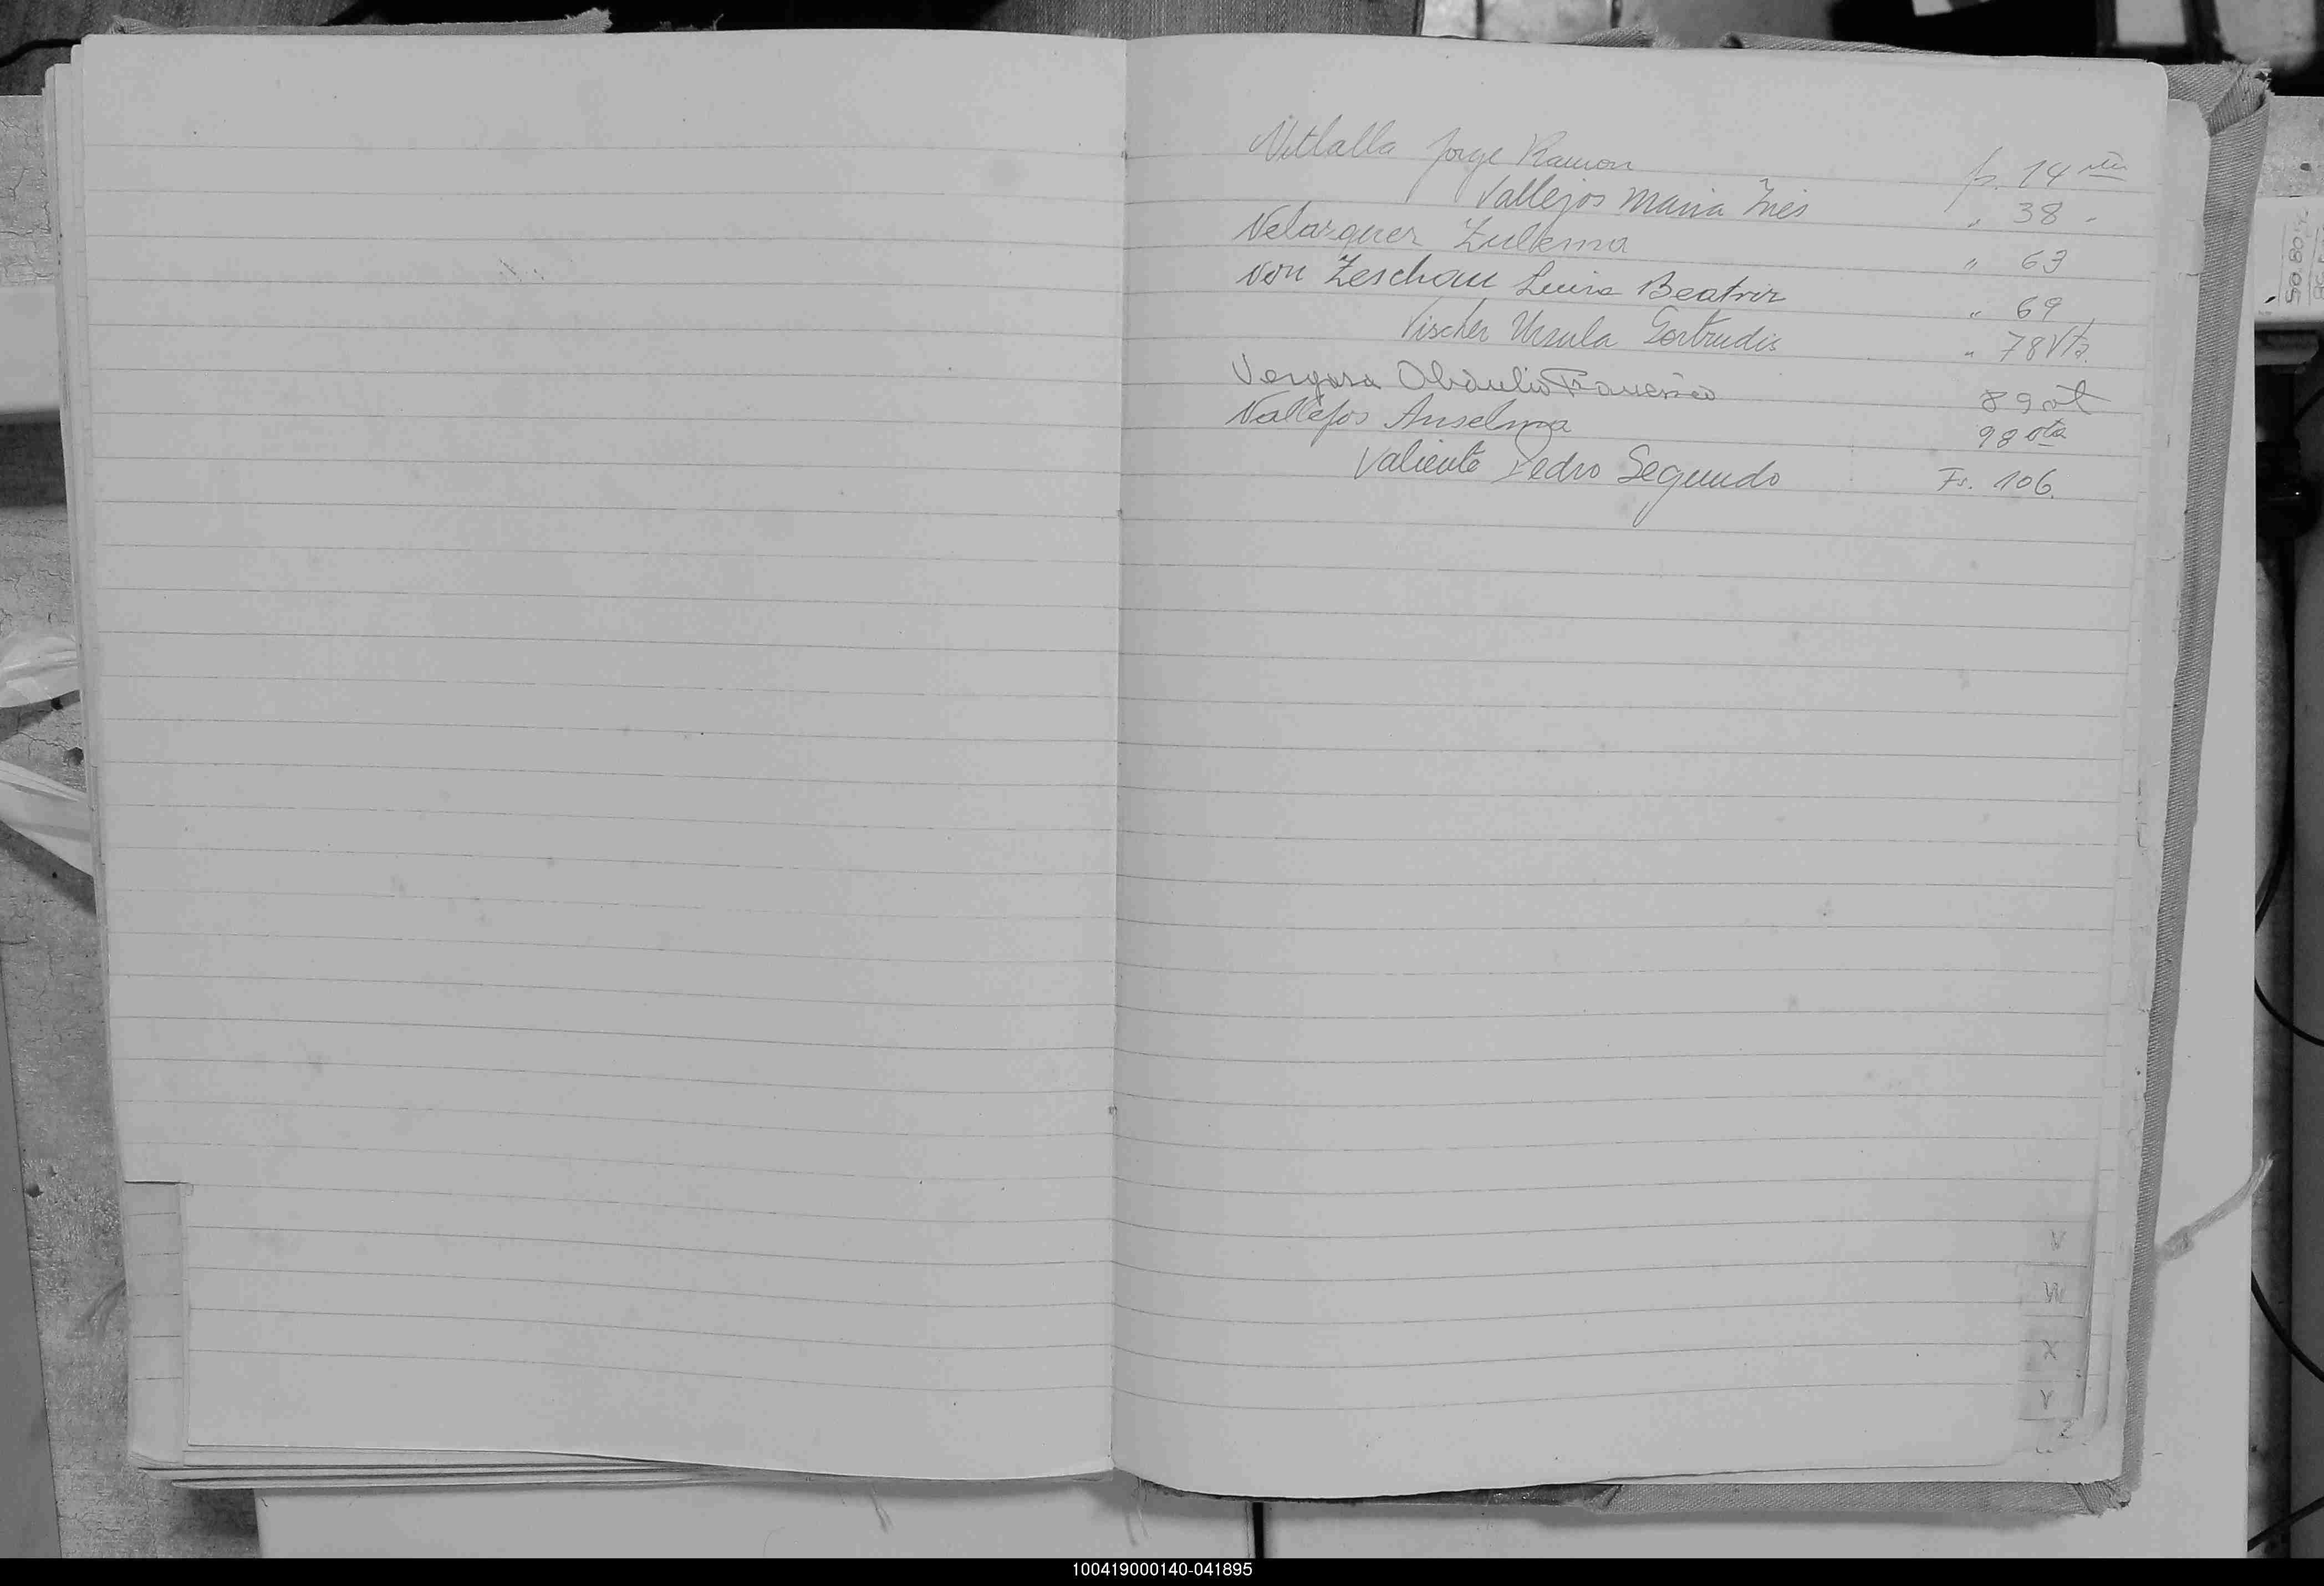 Vitlalla Jorge Ramon fs. 14 vta
Vallejos Maria Inés " 38 "
Velazquez Zulema " 63
Von Zeschau Luisa Beatriz " 69
Vischer Ursula Gertrudis " 78 Vta.
Vergara Obdulio Francisco 89 vt
Vallejos Anselma 98 vta
Valiente Pedro Segundo Fs. 106.
V
W
X
Y
Z
100419000140-041895